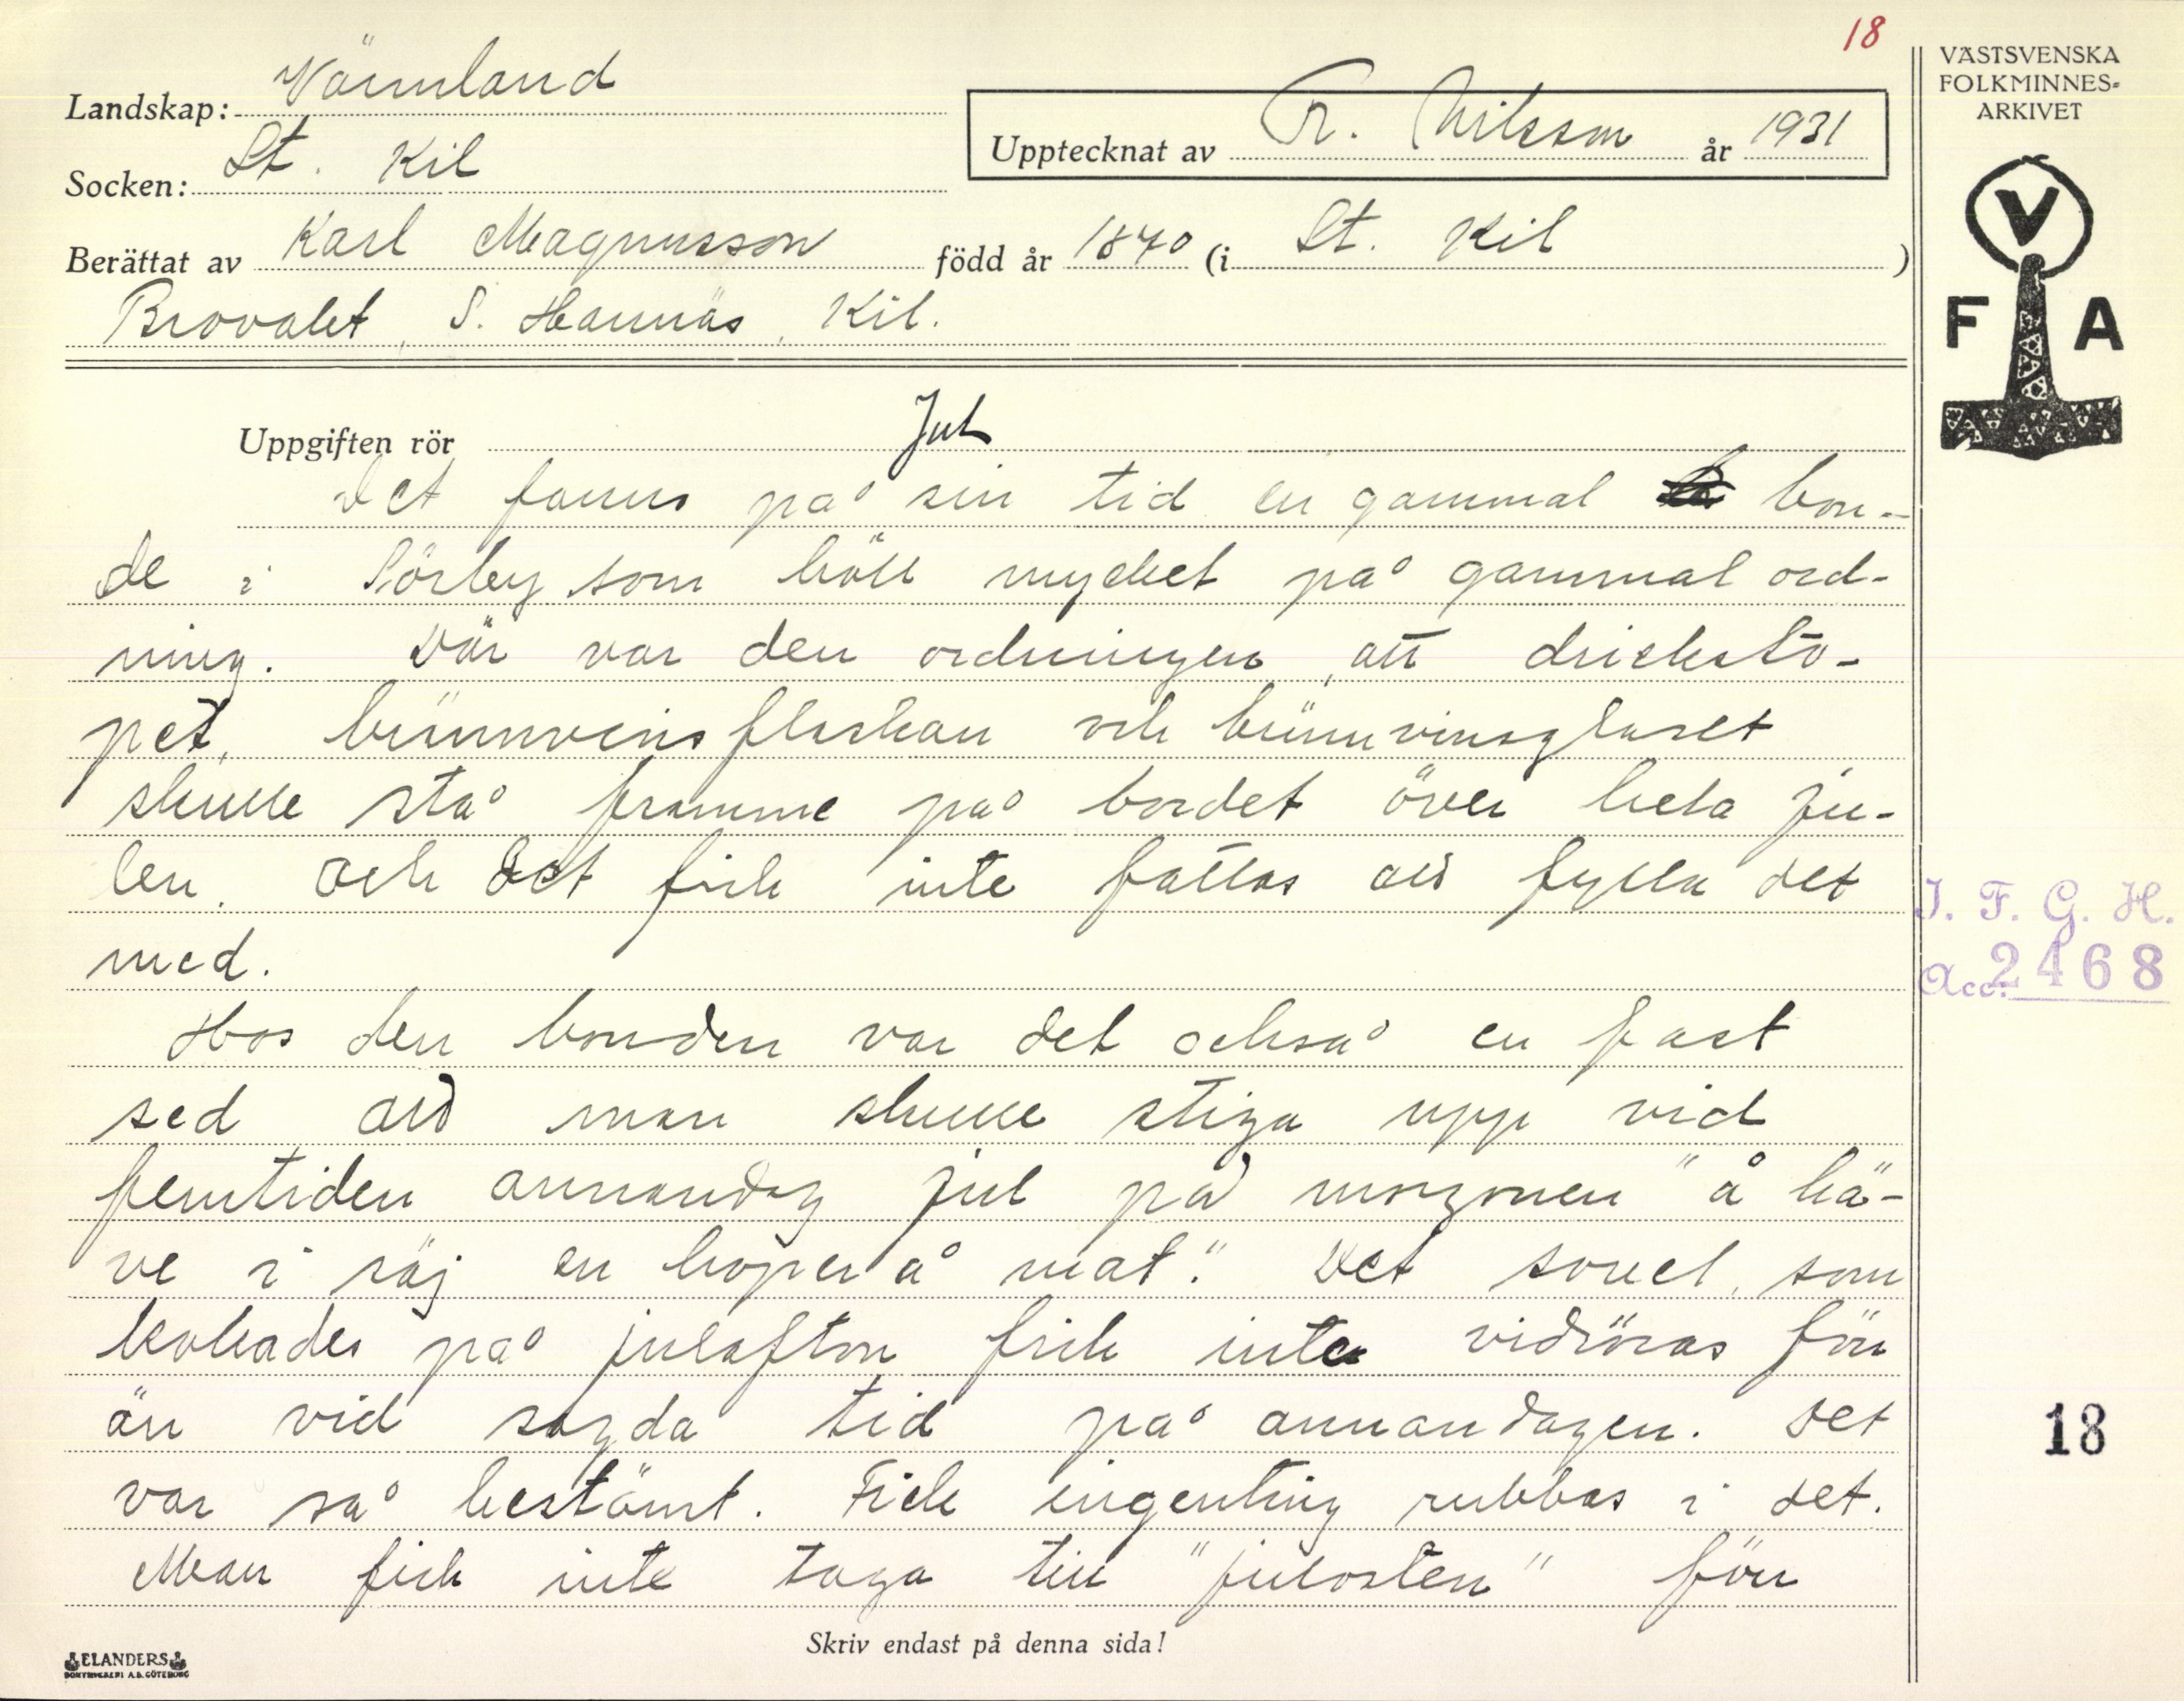 18
VÄSTSVENSKA
FOLKMINNES-
ARKIVET
Landskap: Värmland
Upptecknat av R. Nilsson år 1931
Socken: St. Kil
Berättat av Karl Magnusson född år 1840 (i St. Kil )
Brovalet, S. Hannäs, Kil.
V
F A
Uppgiften rör Jul
Det fanns på sin tid en gammal bon-
de i Sörby som höll mycket på gammal ord-
ning. Där var den ordningen, att dricksto-
pet, brännvinsflaskan och brännvinsglaset
skulle stå framme på bordet över hela ju-
len. Och det fick inte fattas att fylla det
med.
Hos den bonden var det också en fast
sed att man skulle stiga upp vid
femtiden annandag jul på morgonen "å hä-
ve i säj en hoper å mat". Det sovel, som
kokades på julafton fick inte vidröras förr
än vid sagda tid på annandagen. Det
var så bestämt. Fick ingenting rubbas i det.
Man fick inte taga till "julosten" förr
I. F. G. H.
Acc. 2468
18
Skriv endast på denna sida!
ELANDERS
BOKTRYCKERI A.B. GÖTEBORG